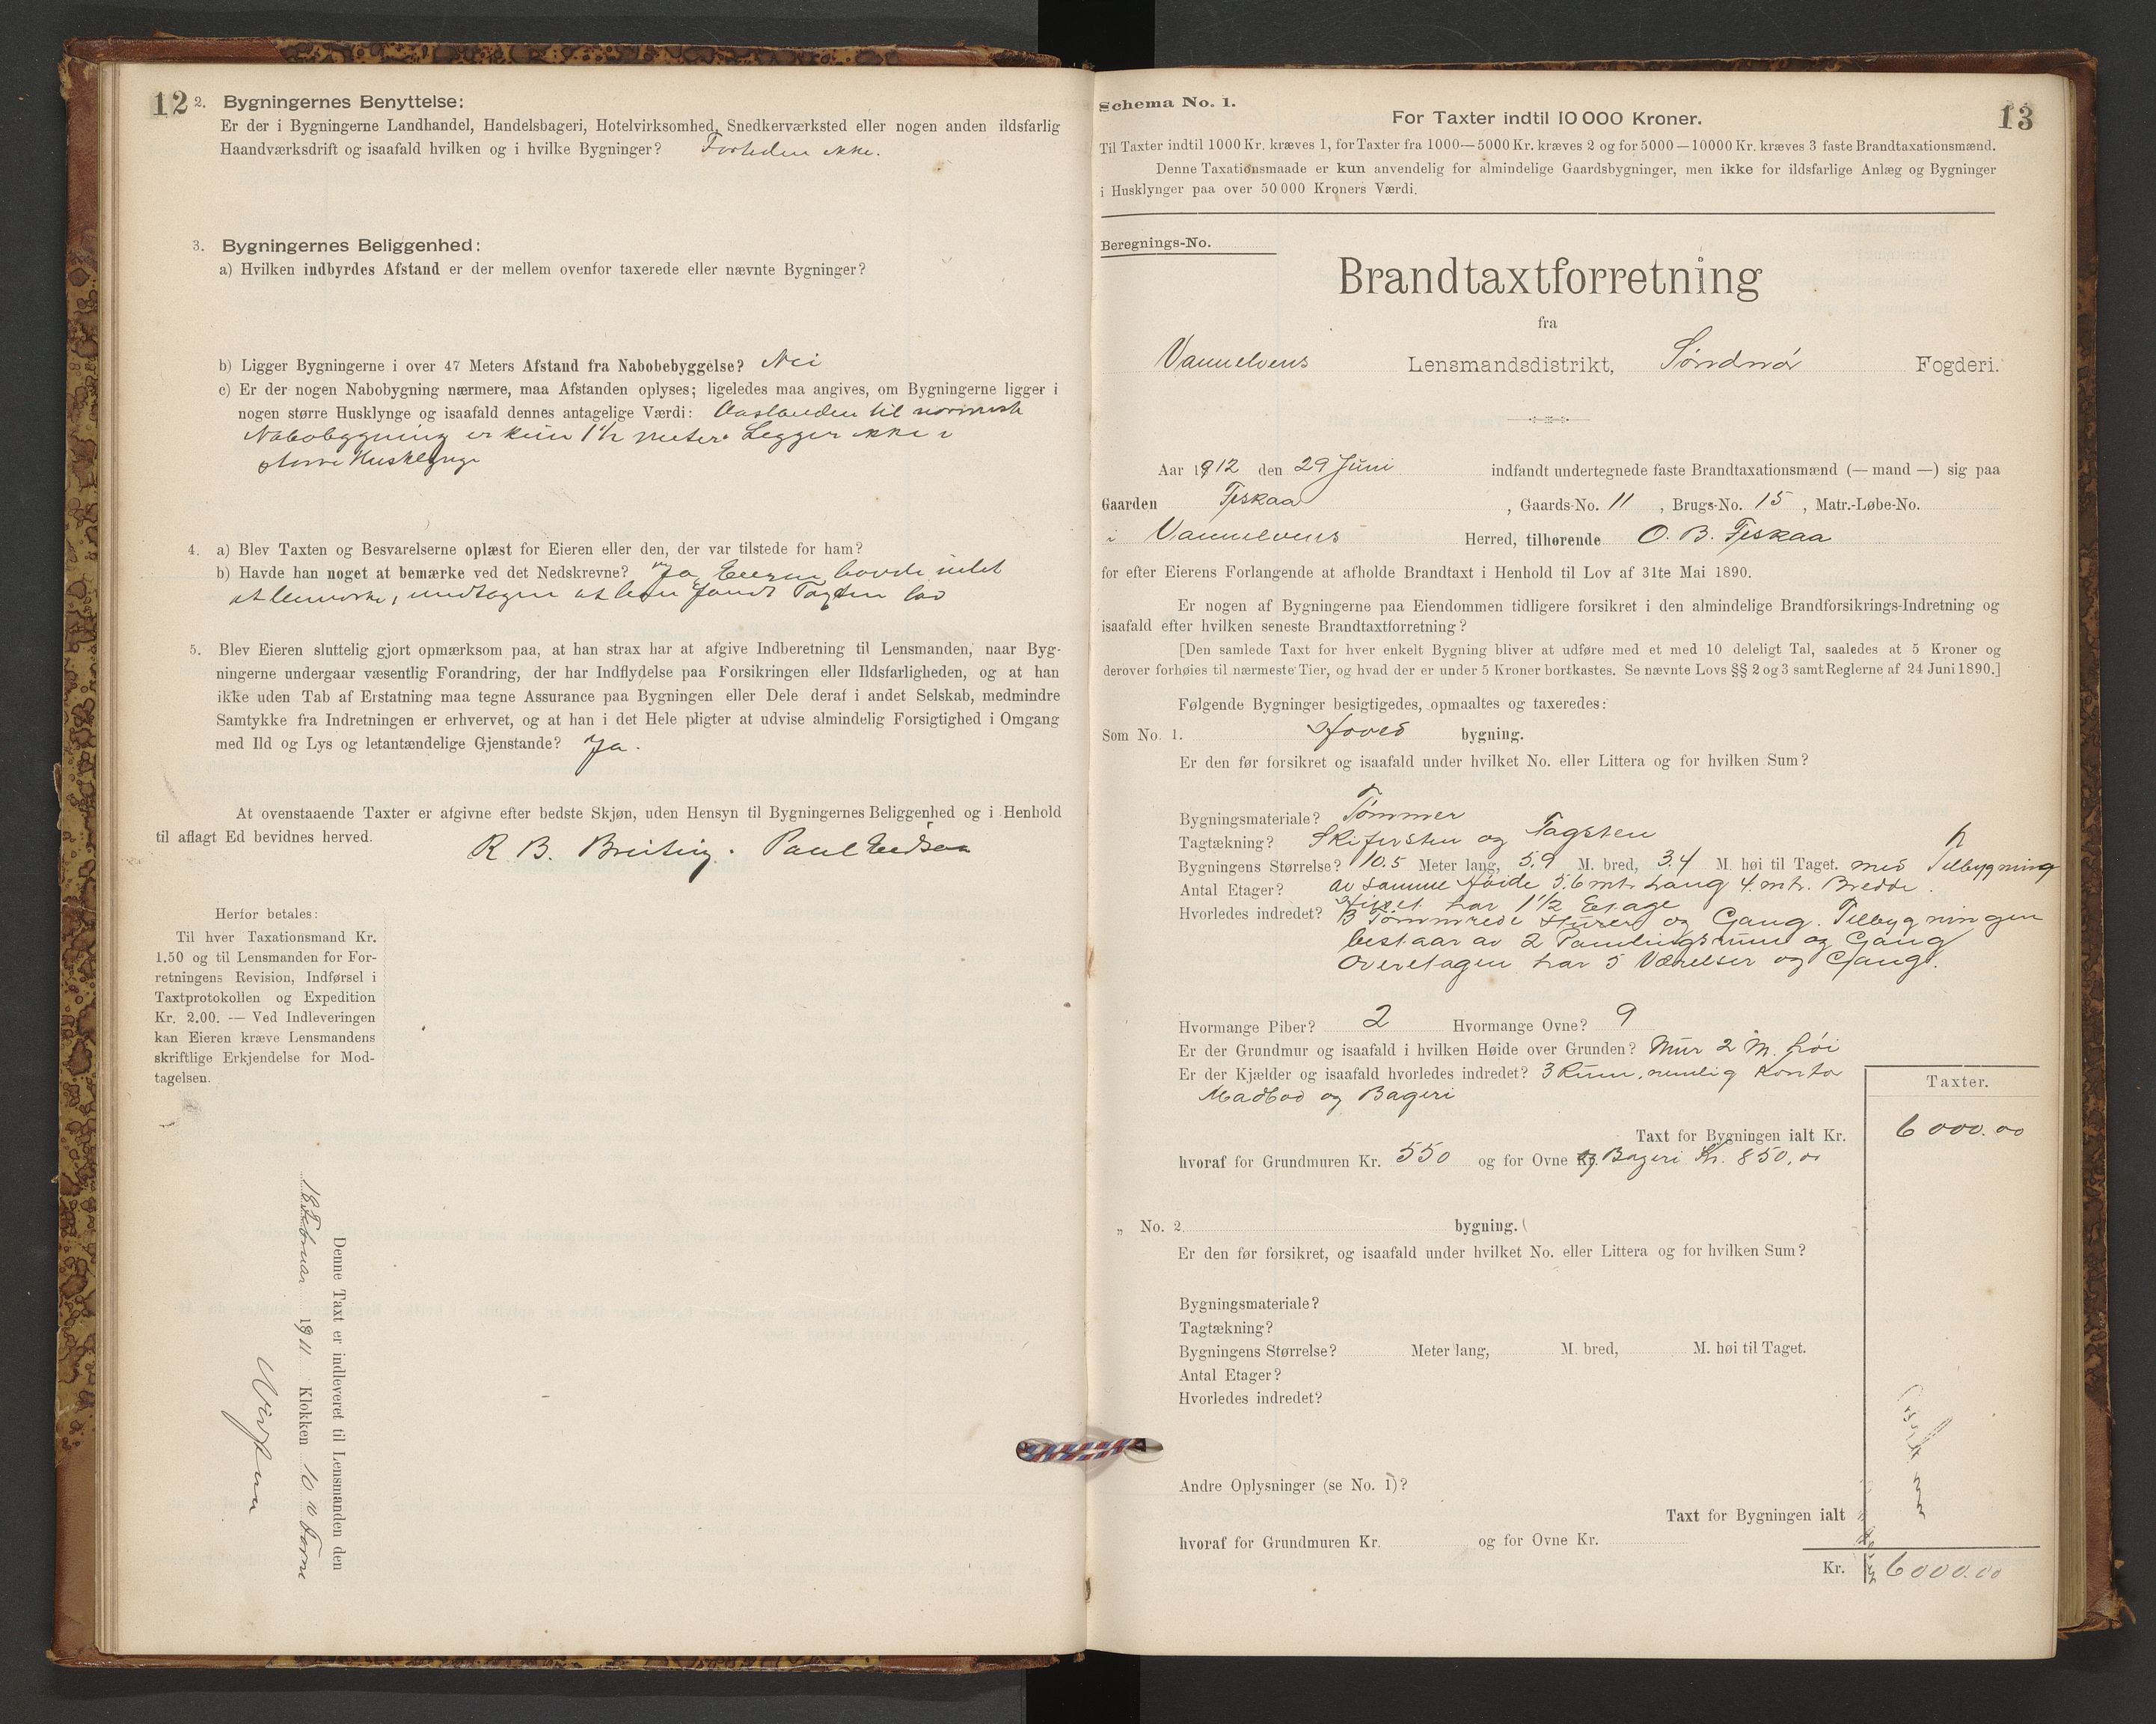 12
2. Bygningernes Benyttelse:
Er der i Bygningerne Landhandel, Handelsbageri, Hotelvirksomhed, Snedkerværksted eller nogen anden ildsfarlig
Haandværksdrift og isaafald hvilken og i hvilke Bygninger? Fortiden ikke.
3. Bygningernes Beliggenhed:
a) Hvilken indbyrdes Afstand er der mellem ovenfor taxerede eller nævnte Bygninger?
b) Ligger Bygningerne i over 47 Meters Afstand fra Nabobebyggelse? Nei
c) Er der nogen Nabobygning nærmere, maa Afstanden oplyses; ligeledes maa angives, om Bygningerne ligger i
nogen større Husklynge og isaafald dennes antagelige Værdi: til
Nabobygning er kun 1½ meter. Ligger ikke i
større Husklynge
4. a) Blev Taxten og Besvarelserne oplæst for Eieren eller den, der var tilstede for ham?
b) Havde han noget at bemærke ved det Nedskrevne? Ja Eieren havde intet
at bemærke, undtagen at han fandt Taxten lav
5. Blev Eieren sluttelig gjort opmærksom paa, at han strax har at afgive Indberetning til Lensmanden, naar Byg-
ningerne undergaar væsentlig Forandring, der har Indflydelse paa Forsikringen eller Ildsfarligheden, og at han
ikke uden Tab af Erstatning maa tegne Assurance paa Bygningen eller Dele deraf i andet Selskab, medmindre
Samtykke fra Indretningen er erhvervet, og at han i det Hele pligter at udvise almindelig Forsigtighed i Omgang
med Ild og Lys og letantændelige Gjenstande? Ja.
At ovenstaaende Taxter er afgivne efter bedste Skjøn, uden Hensyn til Bygningernes Beliggenhed og i Henhold
til aflagt Ed bevidnes herved.
R. B. Paul
Herfor betales:
Til hver Taxationsmand Kr.
1.50 og til Lensmanden for For-
retningens Revision, Indførsel i
Taxtprotokollen og Expedition
Kr. 2.00. — Ved Indleveringen
kan Eieren kræve Lensmandens
skriftlige Erkjendelse for Mod-
tagelsen.
Denne Taxt er indleveret til Lensmanden den
18 Februar 1911 Klokken 10 Form
Schema No. 1.
13
For Taxter indtil 10 000 Kroner.
Til Taxter indtil 1000 Kr. kræves 1, for Taxter fra 1000—5000 Kr. kræves 2 og for 5000—10000 Kr. kræves 3 faste Brandtaxationsmænd.
Denne Taxationsmaade er kun anvendelig for almindelige Gaardsbygninger, men ikke for ildsfarlige Anlæg og Bygninger
i Husklynger paa over 50 000 Kroners Værdi.
Beregnings-No.
Brandtaxtforretning
fra
Vannelvens Lensmandsdistrikt, Søndmør Fogderi.
Aar 1912 den 29 Juni indfandt undertegnede faste Brandtaxationsmænd (— mand —) sig paa
Gaarden Fiskaa, Gaards-No. 11, Brugs-No. 15, Matr.-Løbe-No.
i Vannelvens Herred, tilhørende O. B. Fiskaa
for efter Eierens Forlangende at afholde Brandtaxt i Henhold til Lov af 31te Mai 1890.
Er nogen af Bygningerne paa Eiendommen tidligere forsikret i den almindelige Brandforsikrings-Indretning og
isaafald efter hvilken seneste Brandtaxtforretning?
[Den samlede Taxt for hver enkelt Bygning bliver at udføre med et med 10 deleligt Tal, saaledes at 5 Kroner og
derover forhøies til nærmeste Tier, og hvad der er under 5 Kroner bortkastes. Se nævnte Lovs §§ 2 og 3 samt Reglerne af 24 Juni 1890.]
Følgende Bygninger besigtigedes, opmaaltes og taxeredes:
Som No. 1. Hoved bygning.
Er den før forsikret og isaafald under hvilket No. eller Littera og for hvilken Sum?
Bygningsmateriale? Tømmer
Tagtækning? Skifersten og Tagsten
Bygningens Størrelse? 10.5 Meter lang, 5.9 M. bred, 3.4 M. høi til Taget. med Tilbygning
Antal Etager? av samme Høide 5.6 mtr. Lang 4. mtr. Bredde.
Huset har 1½ Etage
Hvorledes indredet? 3 Tømmrede Stuer og Gang. Tilbygningen
bestaar av 2 Panelingsrum og Gang
Overetagen har 5 Værelser og Gang.
Hvormange Piber? 2 Hvormange Ovne? 9
Er der Grundmur og isaafald i hvilken Høide over Grunden? Mur 2 M. høi
Er der Kjælder og isaafald hvorledes indredet? 3 Rum, nemlig Kontor
Madbod og Bageri
Taxter.
Taxt for Bygningen ialt Kr. 6000.00
hvoraf for Grundmuren Kr. 550 og for Ovne og Bageri Kr. 850,00
„ No. 2 bygning.
Er den før forsikret, og isaafald under hvilket No. eller Littera og for hvilken Sum?
Bygningsmateriale?
Tagtækning?
Bygningens Størrelse? Meter lang, M. bred, M. høi til Taget.
Antal Etager?
Hvorledes indredet?
Andre Oplysninger (se No. 1)?
Taxt for Bygningen ialt
hvoraf for Grundmuren Kr. og for Ovne Kr.
Kr. 6000.00